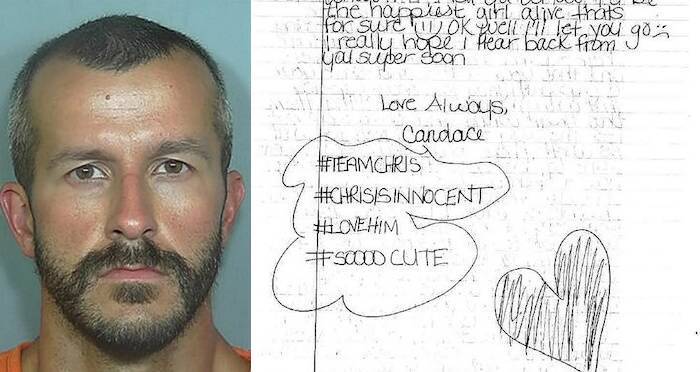 the happiest girl alive thats
for sure!!!! OK well I'll let you go :(
I really hope I hear back from
ya super soon
Love Always,
Candace
#TEAMCHRIS
#CHRISISINNOCENT
#LOVEHIM
#SOOOO CUTE